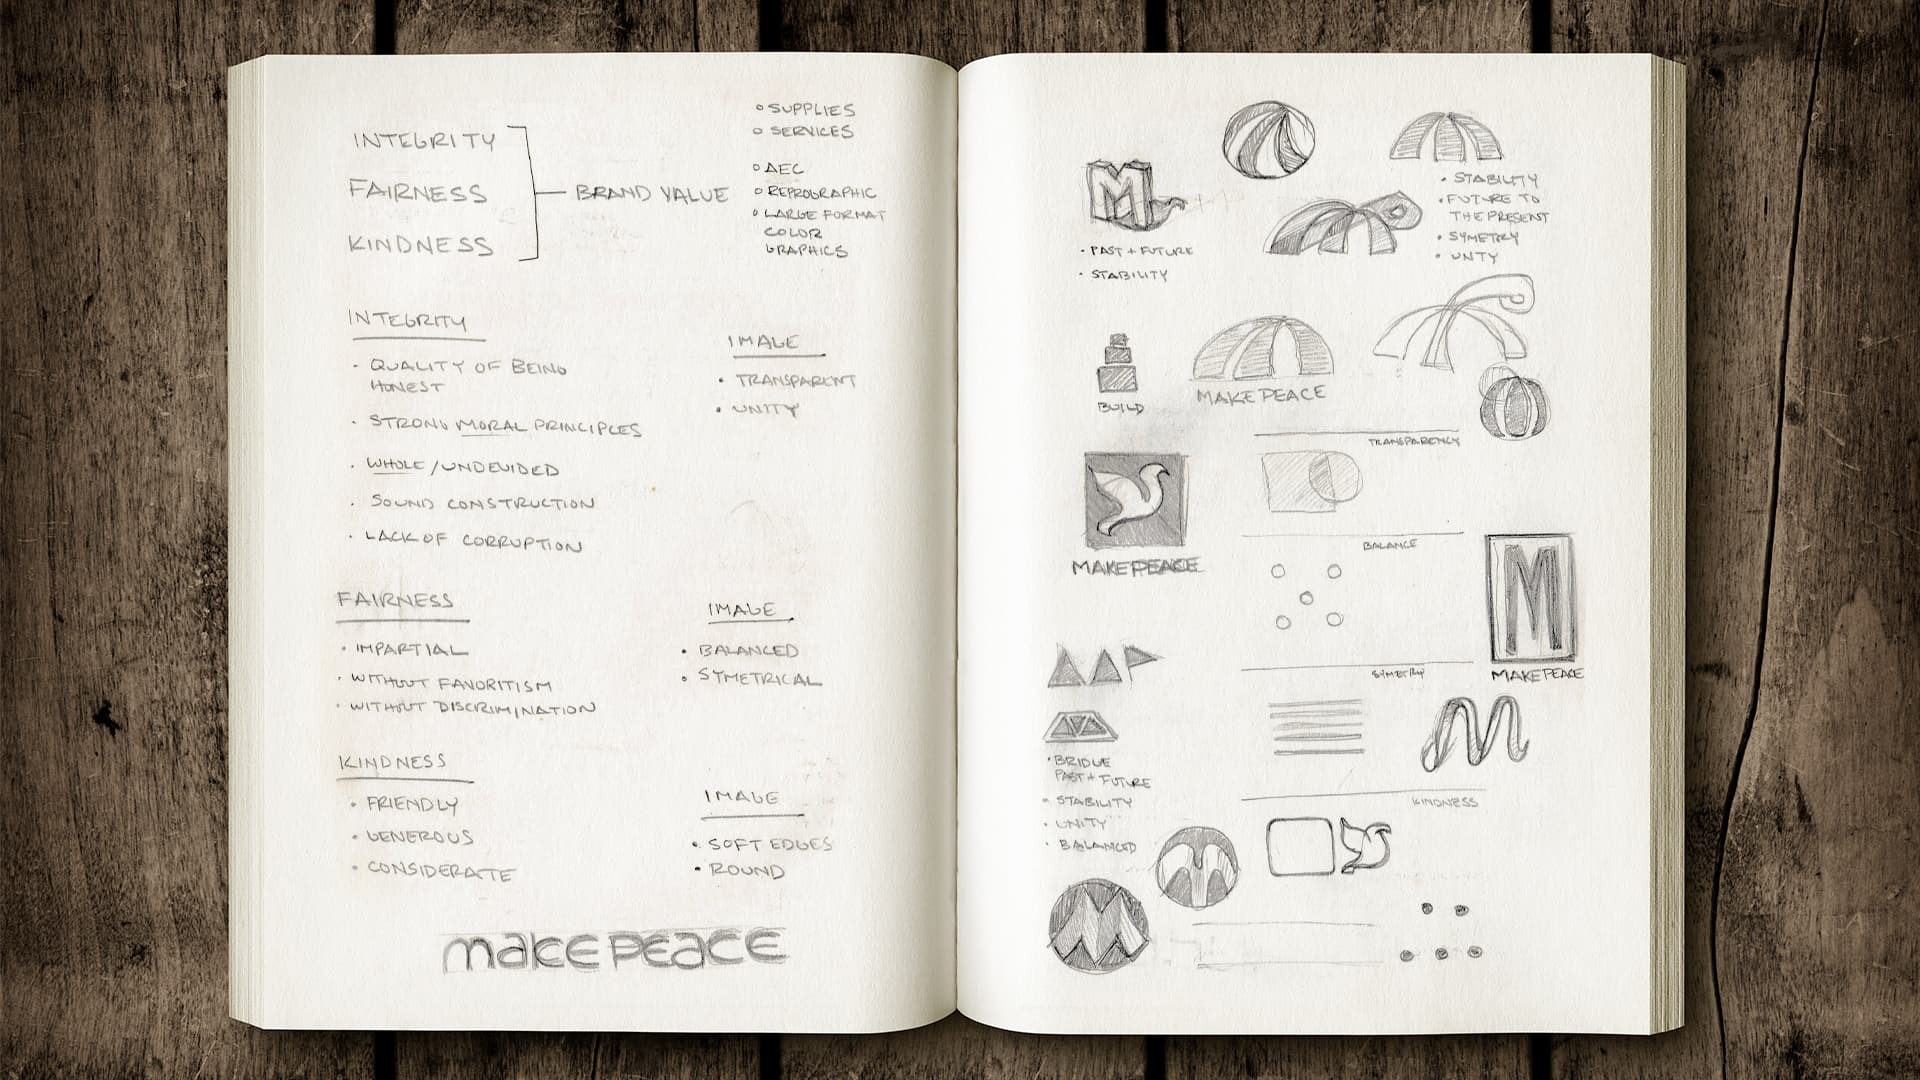 INTEGRITY
FAIRNESS
KINDNESS
BRAND VALUE
SUPPLIES
SERVICES
AEC
REPROGRAPHIC
LARGE FORMAT
COLOR
GRAPHICS
INTEGRITY
• QUALITY OF BEING
HONEST
• STRONG MORAL PRINCIPLES
• WHOLE/UNDEVIDED
• SOUND CONSTRUCTION
• LACK OF CORRUPTION
IMAGE
• TRANSPARENT
• UNITY
FAIRNESS
• IMPARTIAL
• WITHOUT FAVORITISM
• WITHOUT DISCRIMINATION
IMAGE
• BALANCED
• SYMETRICAL
KINDNESS
• FRIENDLY
• GENEROUS
• CONSIDERATE
IMAGE
• SOFT EDGES
• ROUND
makepeace
M
• PAST + FUTURE
• STABILITY
• STABILITY
• FUTURE TO
THE PRESENT
• SYMETRY
• UNTY
BUILD
MAKEPEACE
TRANSPARENCY
MAKEPEACE
BALANCE
M
MAKEPEACE
SYMETRY
M
• BRIDGE
PAST + FUTURE
• STABILITY
• UNITY
• BALANCED
KINDNESS
M
M